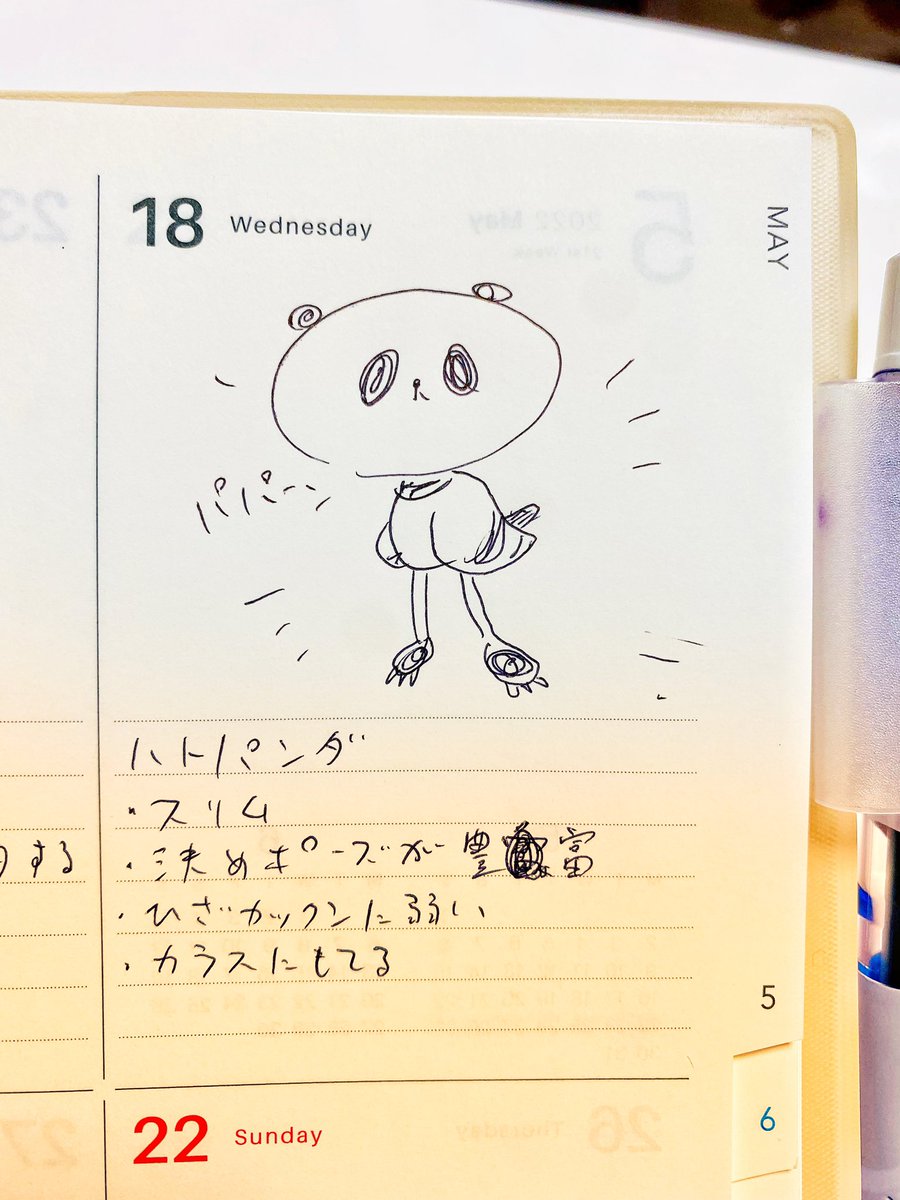 18 Wednesday
MAY
パパーン
ハトパンダ
・スリム
・決めポーズが豊富
する
・ひざカックンに弱い
・カラスにもてる
5
6
22 Sunday